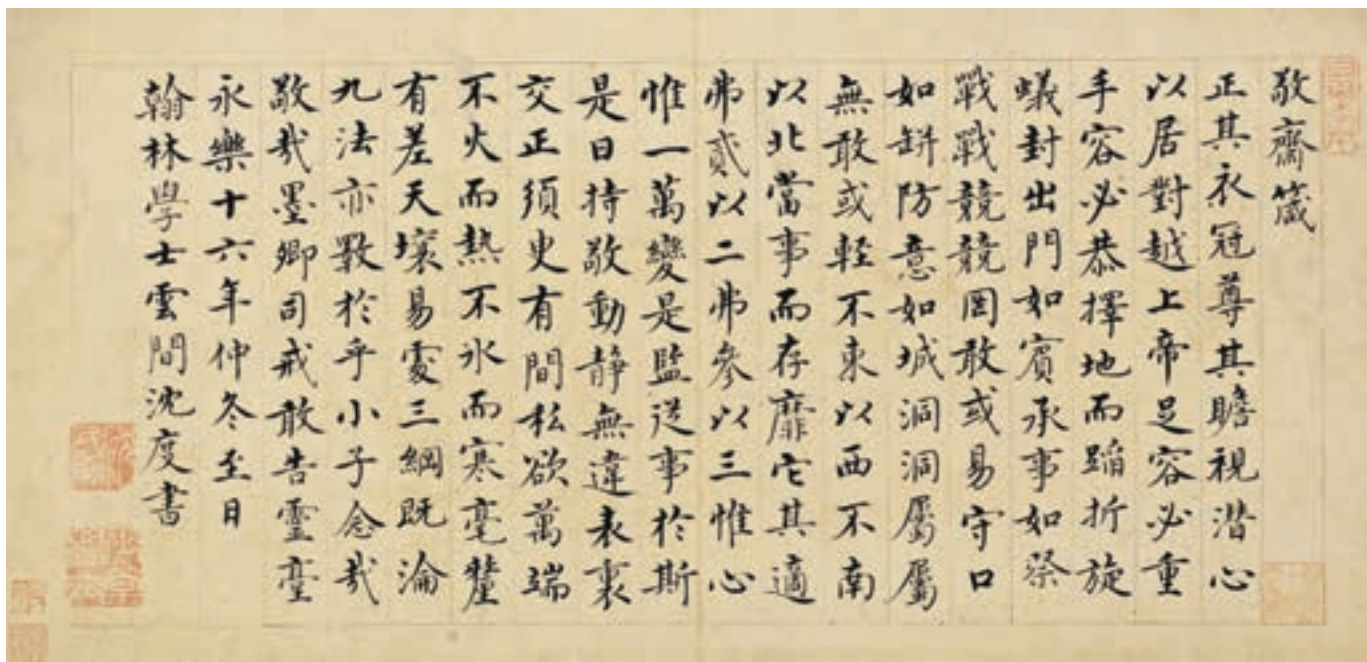 敬齋箴
正其衣冠尊其瞻視潛心
以居對越上帝足容必重
手容必恭擇地而蹈折旋
蟻封出門如賓承事如祭
戰戰競競罔敢或易守口
如缾防意如城洞洞屬屬
無敢或輕不東以西不南
以北當事而存靡它其適
弗貳以二弗參以三惟心
惟一萬變是監從事於斯
是日持敬動靜無違表裏
交正須臾有間私欲萬端
不火而熱不氷而寒毫釐
有差天壤易處三綱既淪
九法亦斁於乎小子念哉
敬哉墨卿司戒敢告靈臺
永樂十六年仲冬至日
翰林學士雲間沈度書